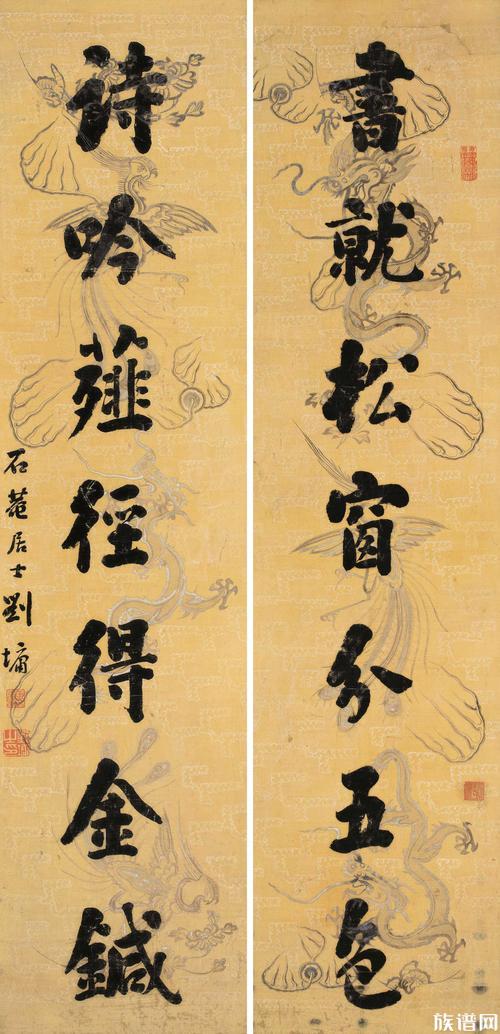 書就松窗分五色
詩吟薤徑得金鍼
石菴居士劉墉
族谱网